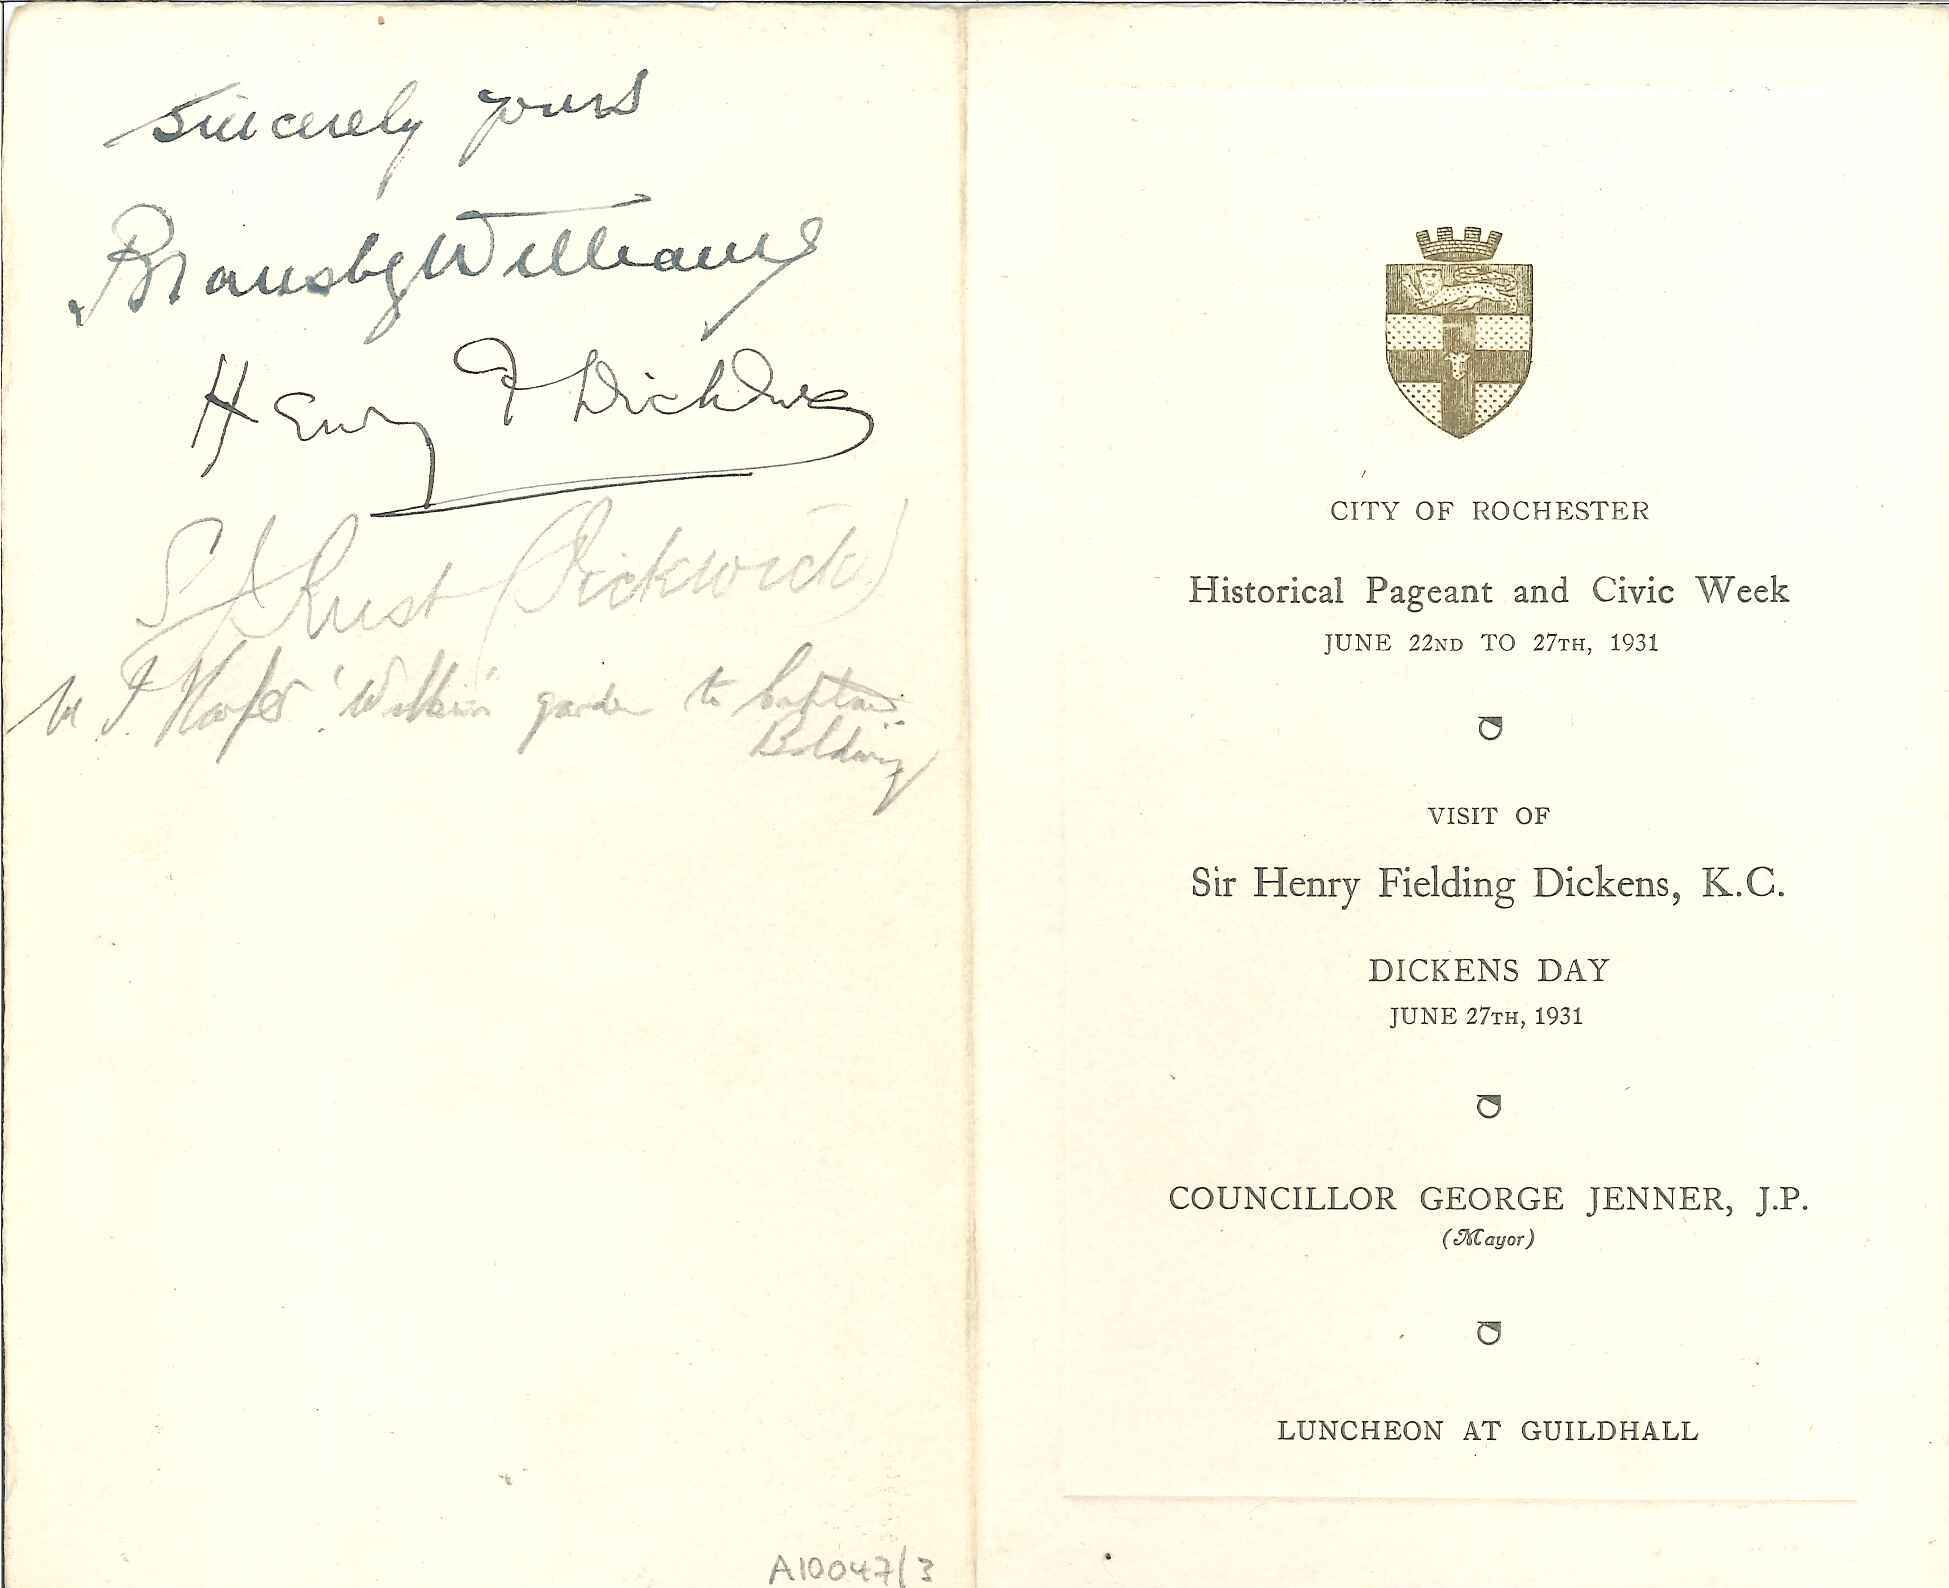 Sincerely yours
Bransby Williams
Henry F Dickens
S J Rust (Pickwick)
garden to Captain
Boldwig
A10047/3
CITY OF ROCHESTER
Historical Pageant and Civic Week
JUNE 22ND TO 27TH, 1931
VISIT OF
Sir Henry Fielding Dickens, K.C.
DICKENS DAY
JUNE 27TH, 1931
COUNCILLOR GEORGE JENNER, J.P.
(Mayor)
LUNCHEON AT GUILDHALL